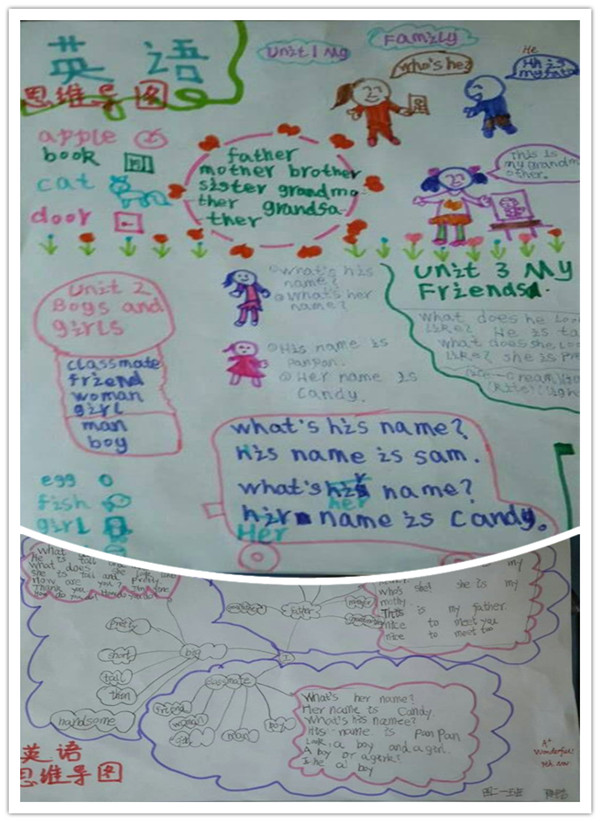 英 语
思维导图
Unit 1 My
Family
Who's he?
He is
my fath
apple
book
cat
door
father
mother brother
sister grandmo
ther grandsa
ther
This is
my grandm
other.
Unit 2
Boys and
girls
classmate
friend
woman
girl
man
boy
①What's his
name?
②What's her
name?
①His name is
Panpan.
②Her name is
Candy.
Unit 3 My
Friends
what does he loo
like? He is ta
what does she loo
like? she is pr
Ice-cream
egg
fish
girl
what's his name?
his name is sam.
what's her name?
Her name is Candy.
he is tall
what does she
she is tall and pretty.
How are you?
Thank you
my
who's she? she is my
This is my father.
nice to meet you
nice to meet too
big
short
tall
thin
handsome
sister
classmate
friend
woman
girl
man
boy
What's her name?
Her name is Candy.
What's his namee?
His name is Pan Pan
Look, a boy and a girl.
A boy or a girl?
Is he a boy
英语
思维导图
A+
Wonderful